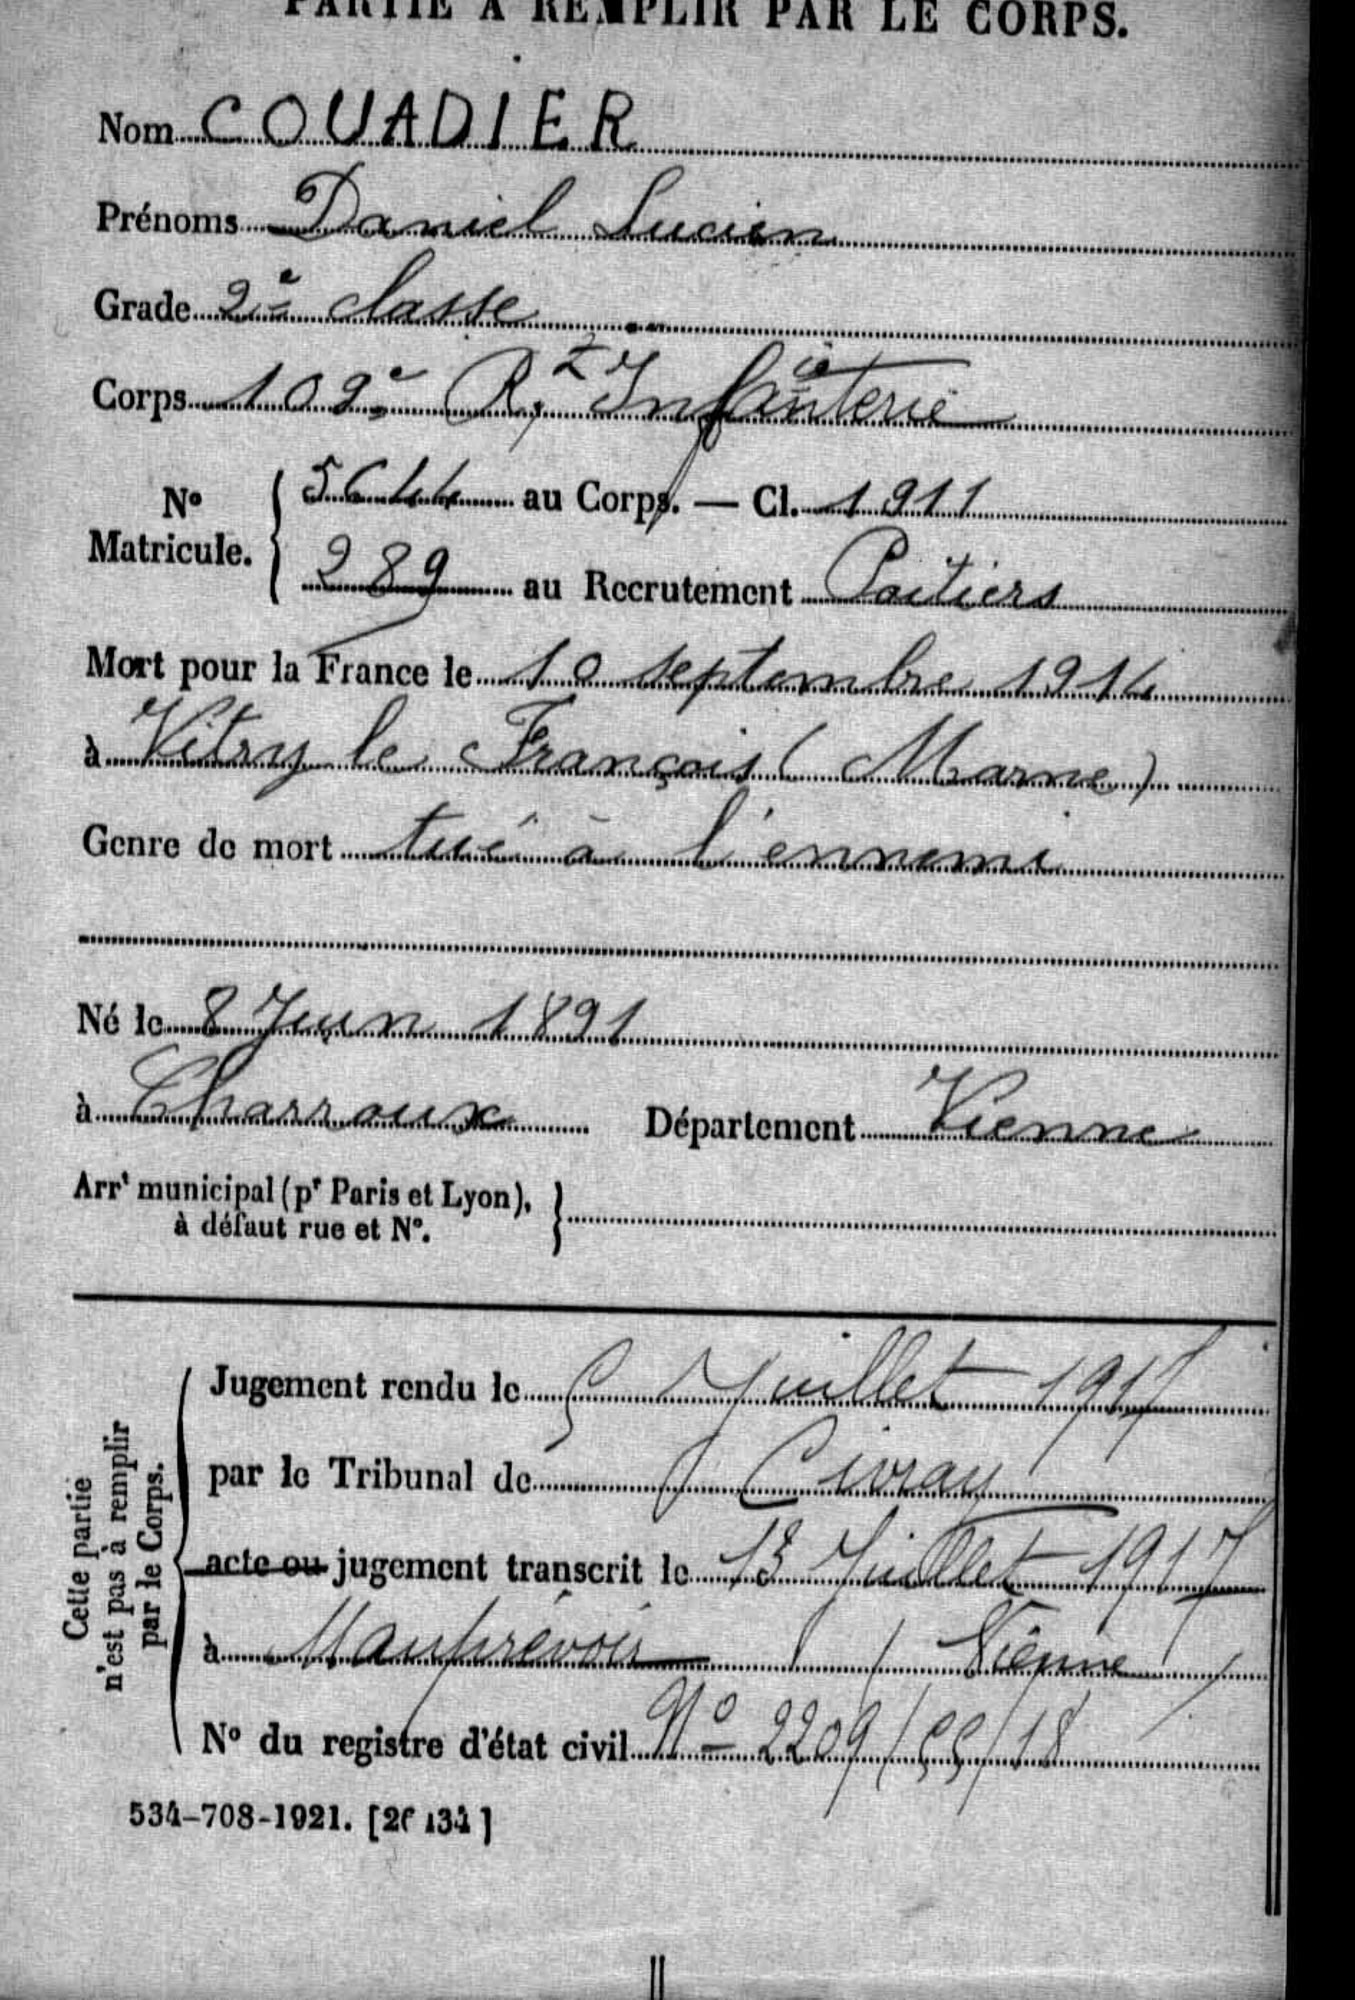 PARTIE A REMPLIR PAR LE CORPS.
Nom COUADIER
Prénoms Daniel Lucien
Grade 2e classe
Corps 109e R. Infanterie
No Matricule. 5644 au Corps. — Cl. 1911
289 au Recrutement Poitiers
Mort pour la France le 10 septembre 1914
à Vitry le François (Marne)
Genre de mort tué à l'ennemi
Né le 8 Juin 1891
à Charroux Département Vienne
Arrt municipal (pr Paris et Lyon),
à défaut rue et No.
Cette partie
n'est pas à remplir
par le Corps.
Jugement rendu le 5 Juillet 1917
par le Tribunal de Civray
acte ou jugement transcrit le 13 Juillet 1917
à Mauprévoir (Vienne)
No du registre d'état civil No 2209/55/18
534-708-1921.